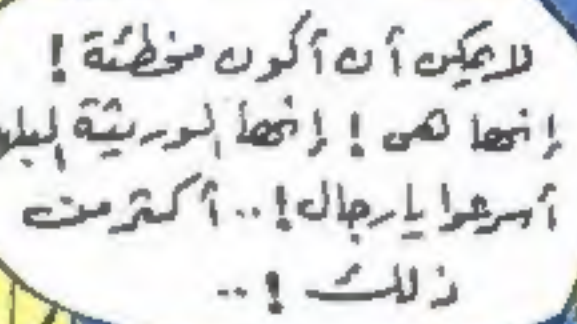 لا يمكن أن أكون مخطئة !
إنها هى ! إنها الوريثة
أسرعوا يا رجال ! .. أكثر من
ذلك ! ..